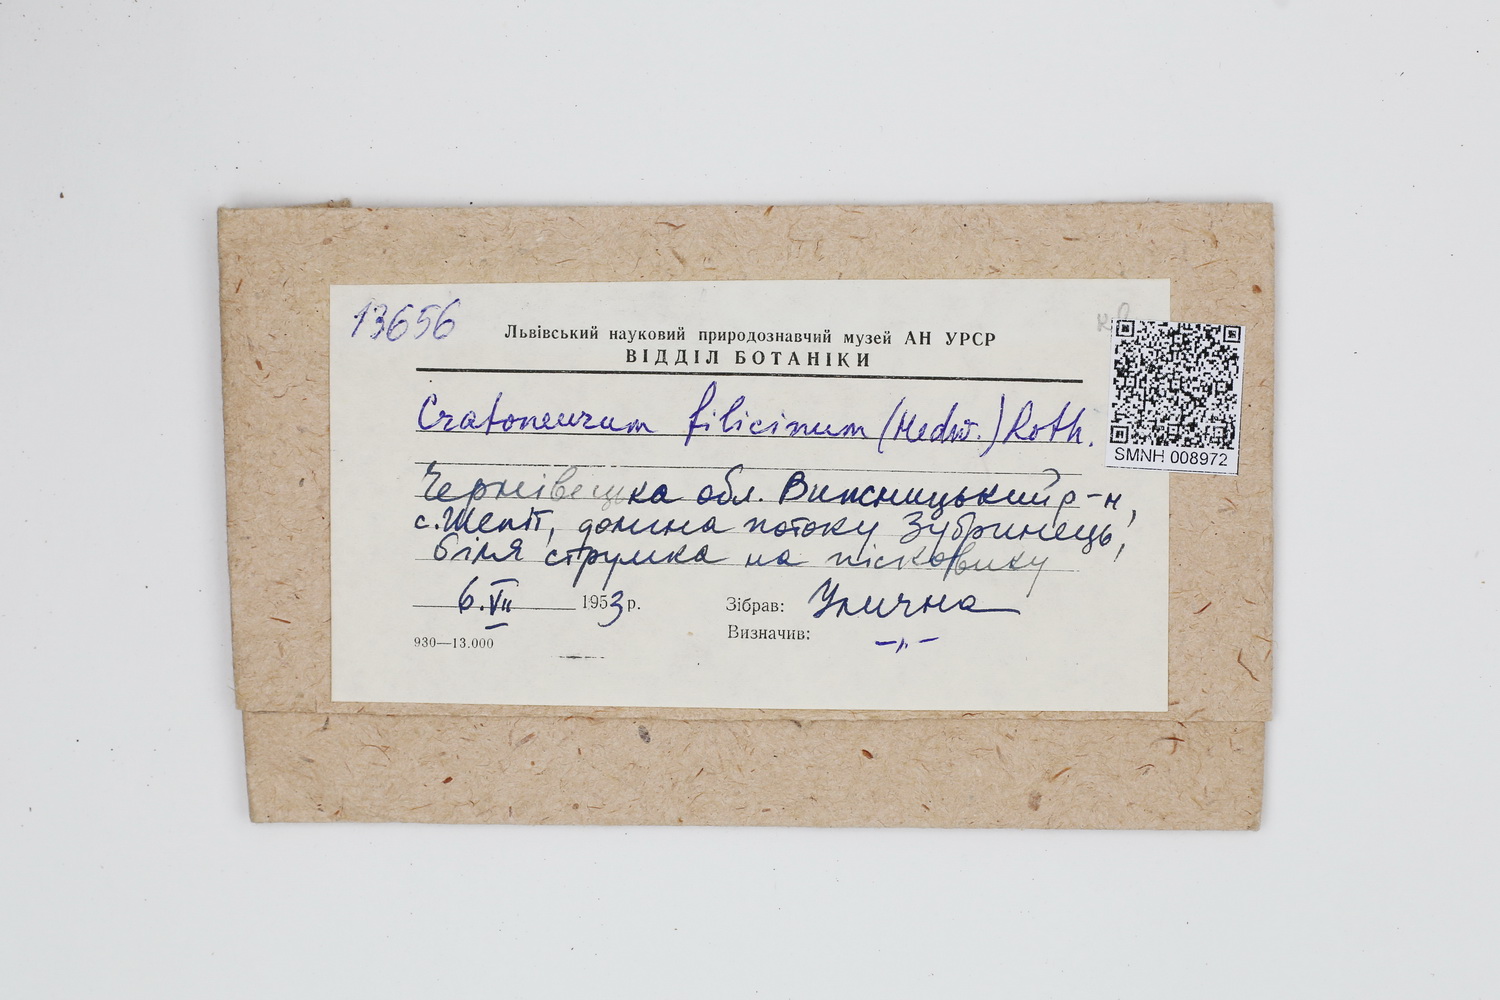 13656
Львівський науковий природознавчий музей АН УРСР
ВІДДІЛ БОТАНІКИ
Cratoneurum filicinum (Hedw.) Roth.
Чернівецька обл. Вижницький р-н,
с. Шепіт, долина потоку Зубринець,
біля струмка на пісковику
6.VII 1953 р.
Зібрав: Улична
Визначив: —"—
930—13.000
SMNH 008972